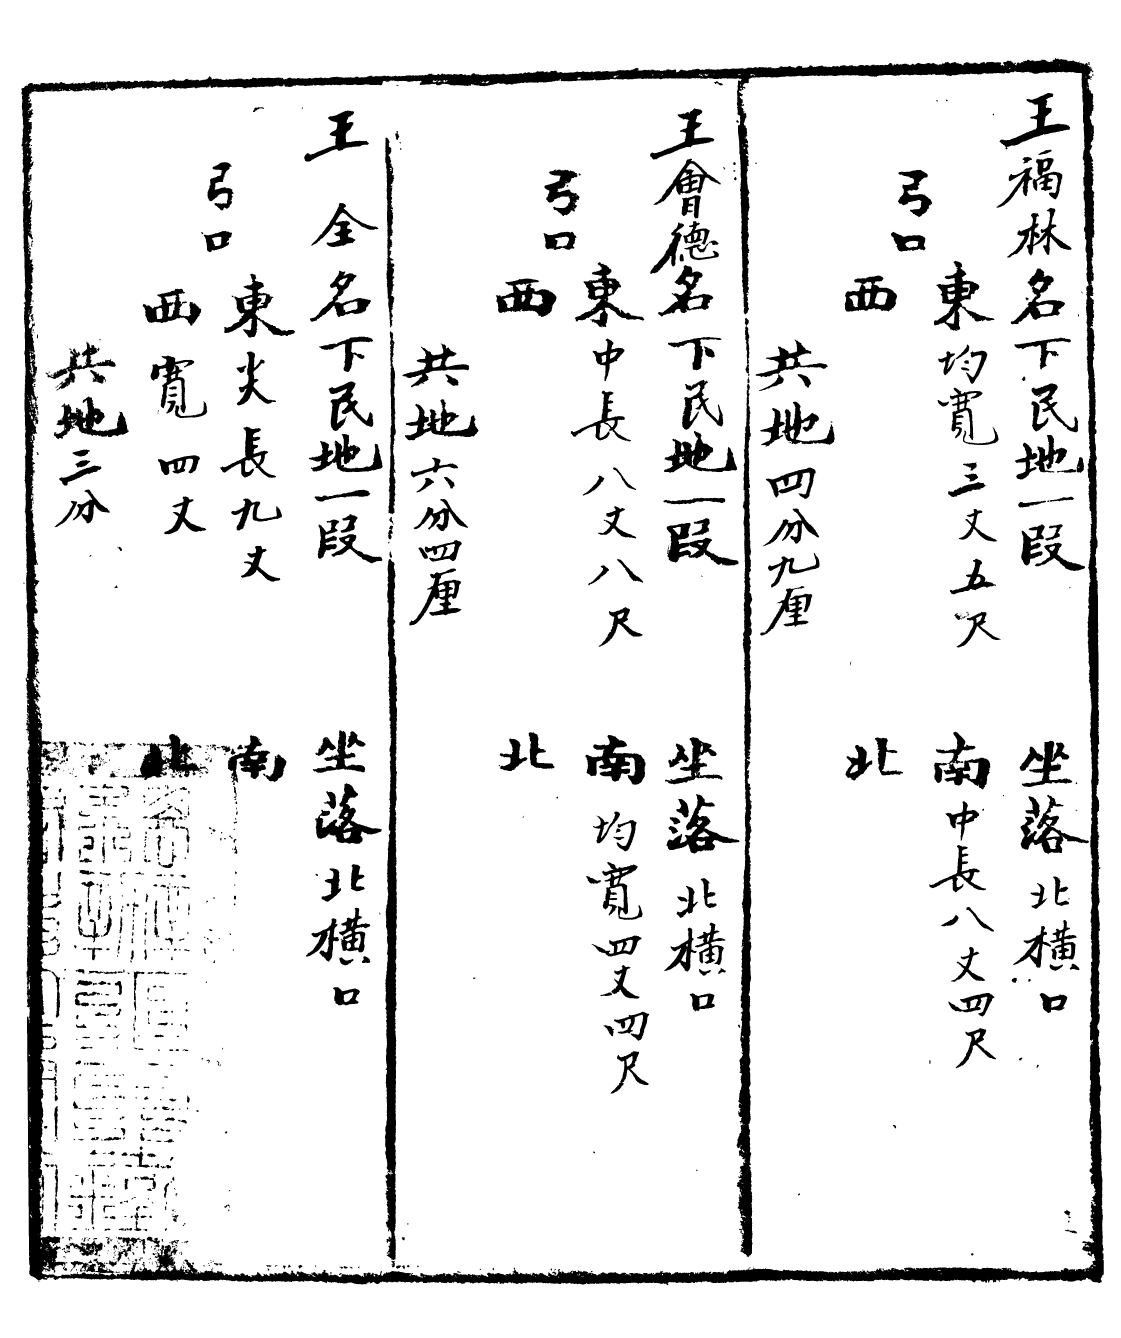 王福林名下民地一段　坐落北橫口
弓口
東均寬三丈五尺　南中長八丈四尺
西　北
共地四分九厘
王會德名下民地一段　坐落北橫口
弓口
東中長八丈八尺　南均寬四丈四尺
西　北
共地六分四厘
王全名下民地一段　坐落北橫口
弓口
東尖長九丈　南
西寬四丈　北
共地三分